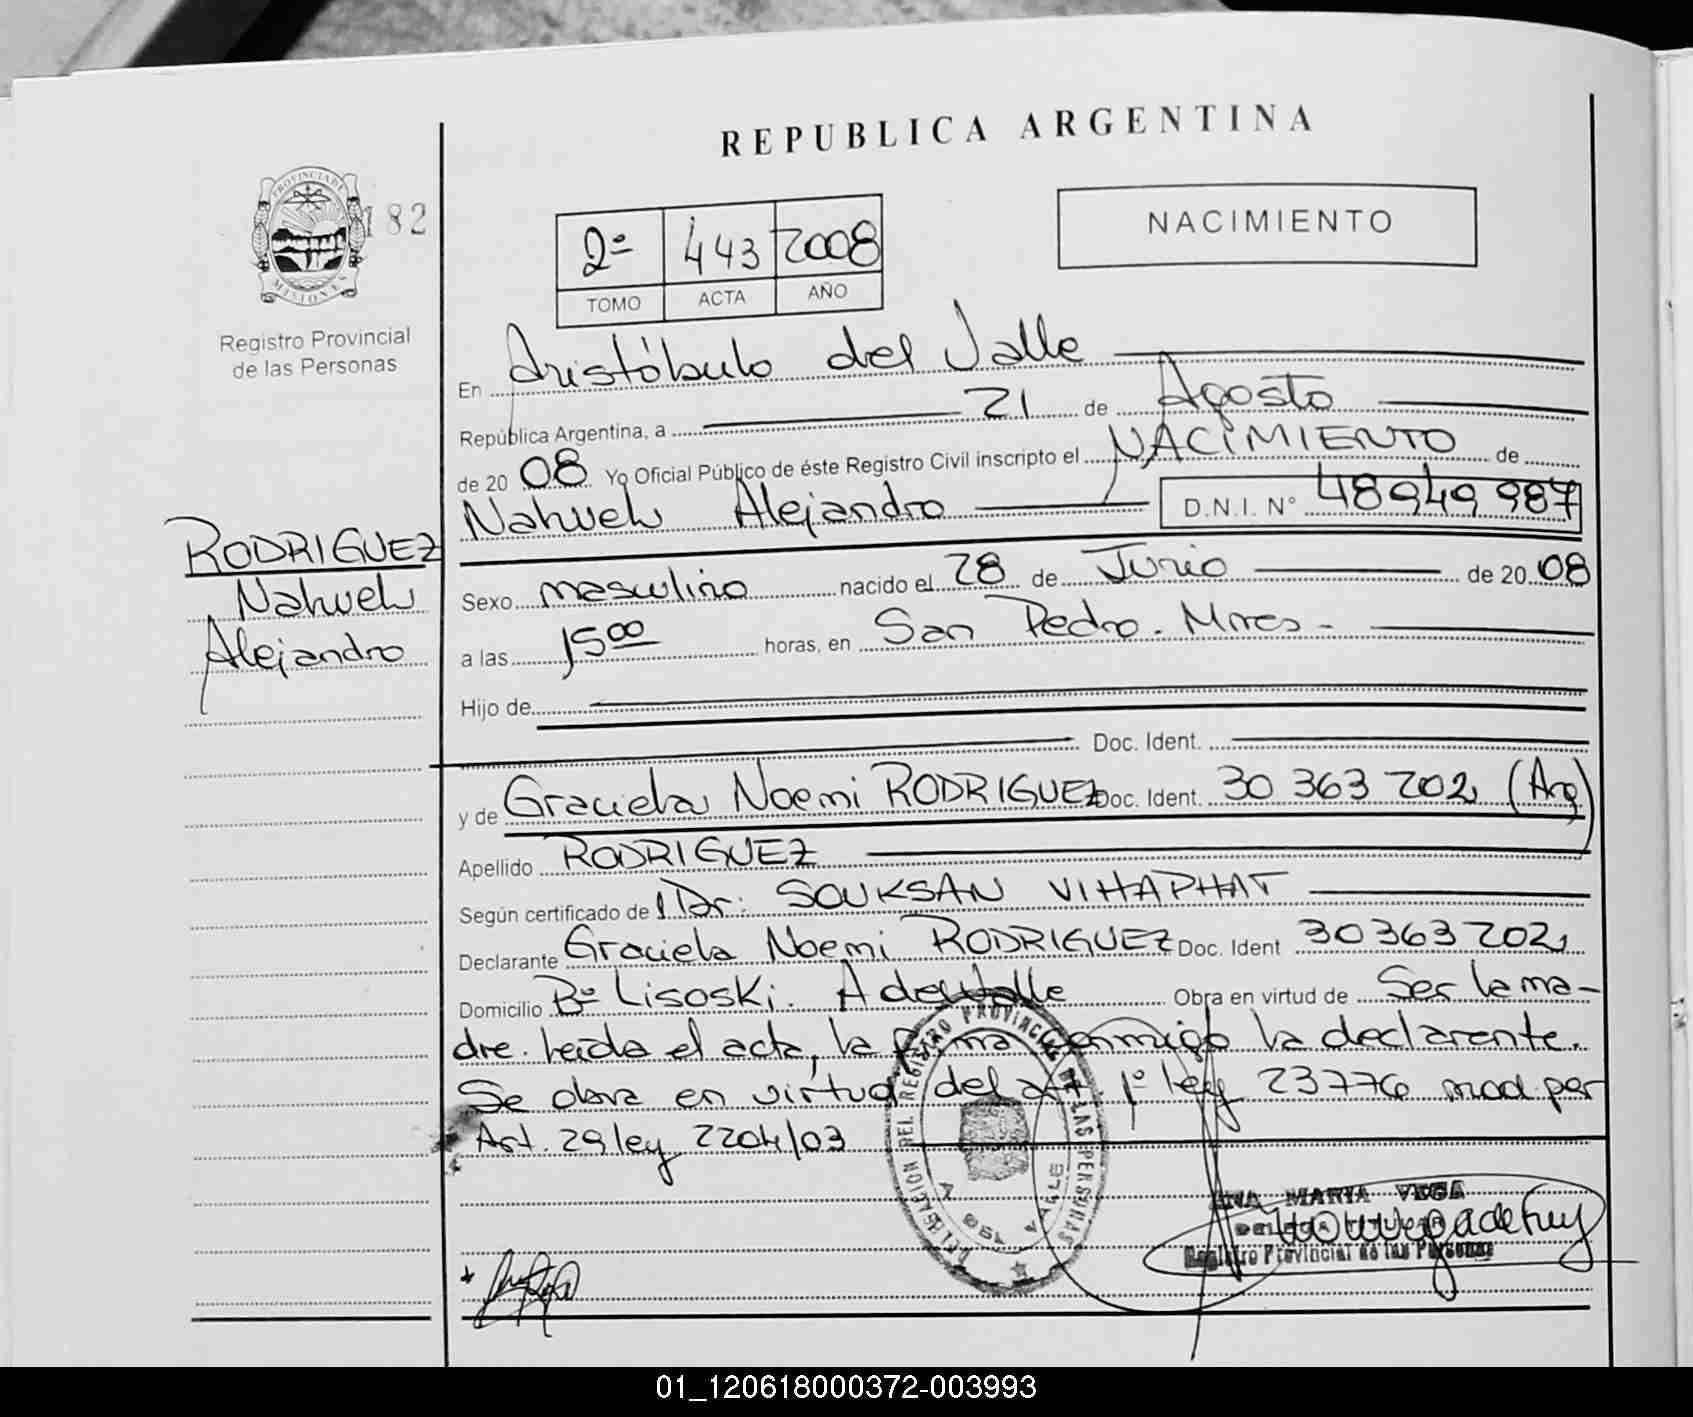 REPUBLICA ARGENTINA
PROVINCIA DE
MISIONES
182
Registro Provincial
de las Personas
NACIMIENTO
2º 443 2008
TOMO ACTA AÑO
En Aristóbulo del Valle
República Argentina, a 21 de Agosto
de 2008 Yo Oficial Público de éste Registro Civil inscripto el NACIMIENTO de
Nahuel Alejandro D.N.I. Nº 48949987
RODRIGUEZ
Nahuel
Alejandro
Sexo masculino nacido el 28 de Junio de 2008
a las 15 00 horas, en San Pedro. Mnes-
Hijo de
Doc. Ident.
y de Graciela Noemi RODRIGUEZ Doc. Ident. 30 363 202 (Arg)
Apellido RODRIGUEZ
Según certificado de Dr: SOUKSAN VIHAPHAT
Declarante Graciela Noemi RODRIGUEZ Doc. Ident 30363202
Domicilio Bº Lisoski. A del Valle Obra en virtud de Ser la ma-
dre. Leida el acta, la firma conmigo la declarante.
Se obra en virtud del art 1º ley 23776 mod. por
Art. 29 ley 2204/03
DELEGACION DEL REGISTRO PROVINCIAL DE LAS PERSONAS
A DEL VALLE
ANA MARIA VEGA
DELEGADA TITULAR
Registro Provincial de las Personas
01_120618000372-003993